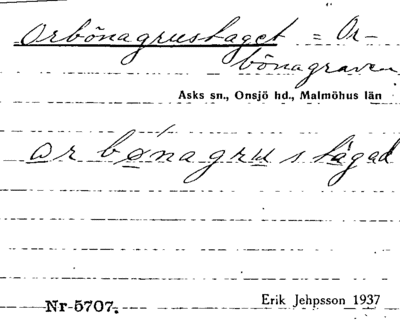 Orbönagrustaget = Or-
bönagraven
Asks sn., Onsjö hd., Malmöhus län
orbónagrustàgad
Nr 5707.
Erik Jehpsson 1937